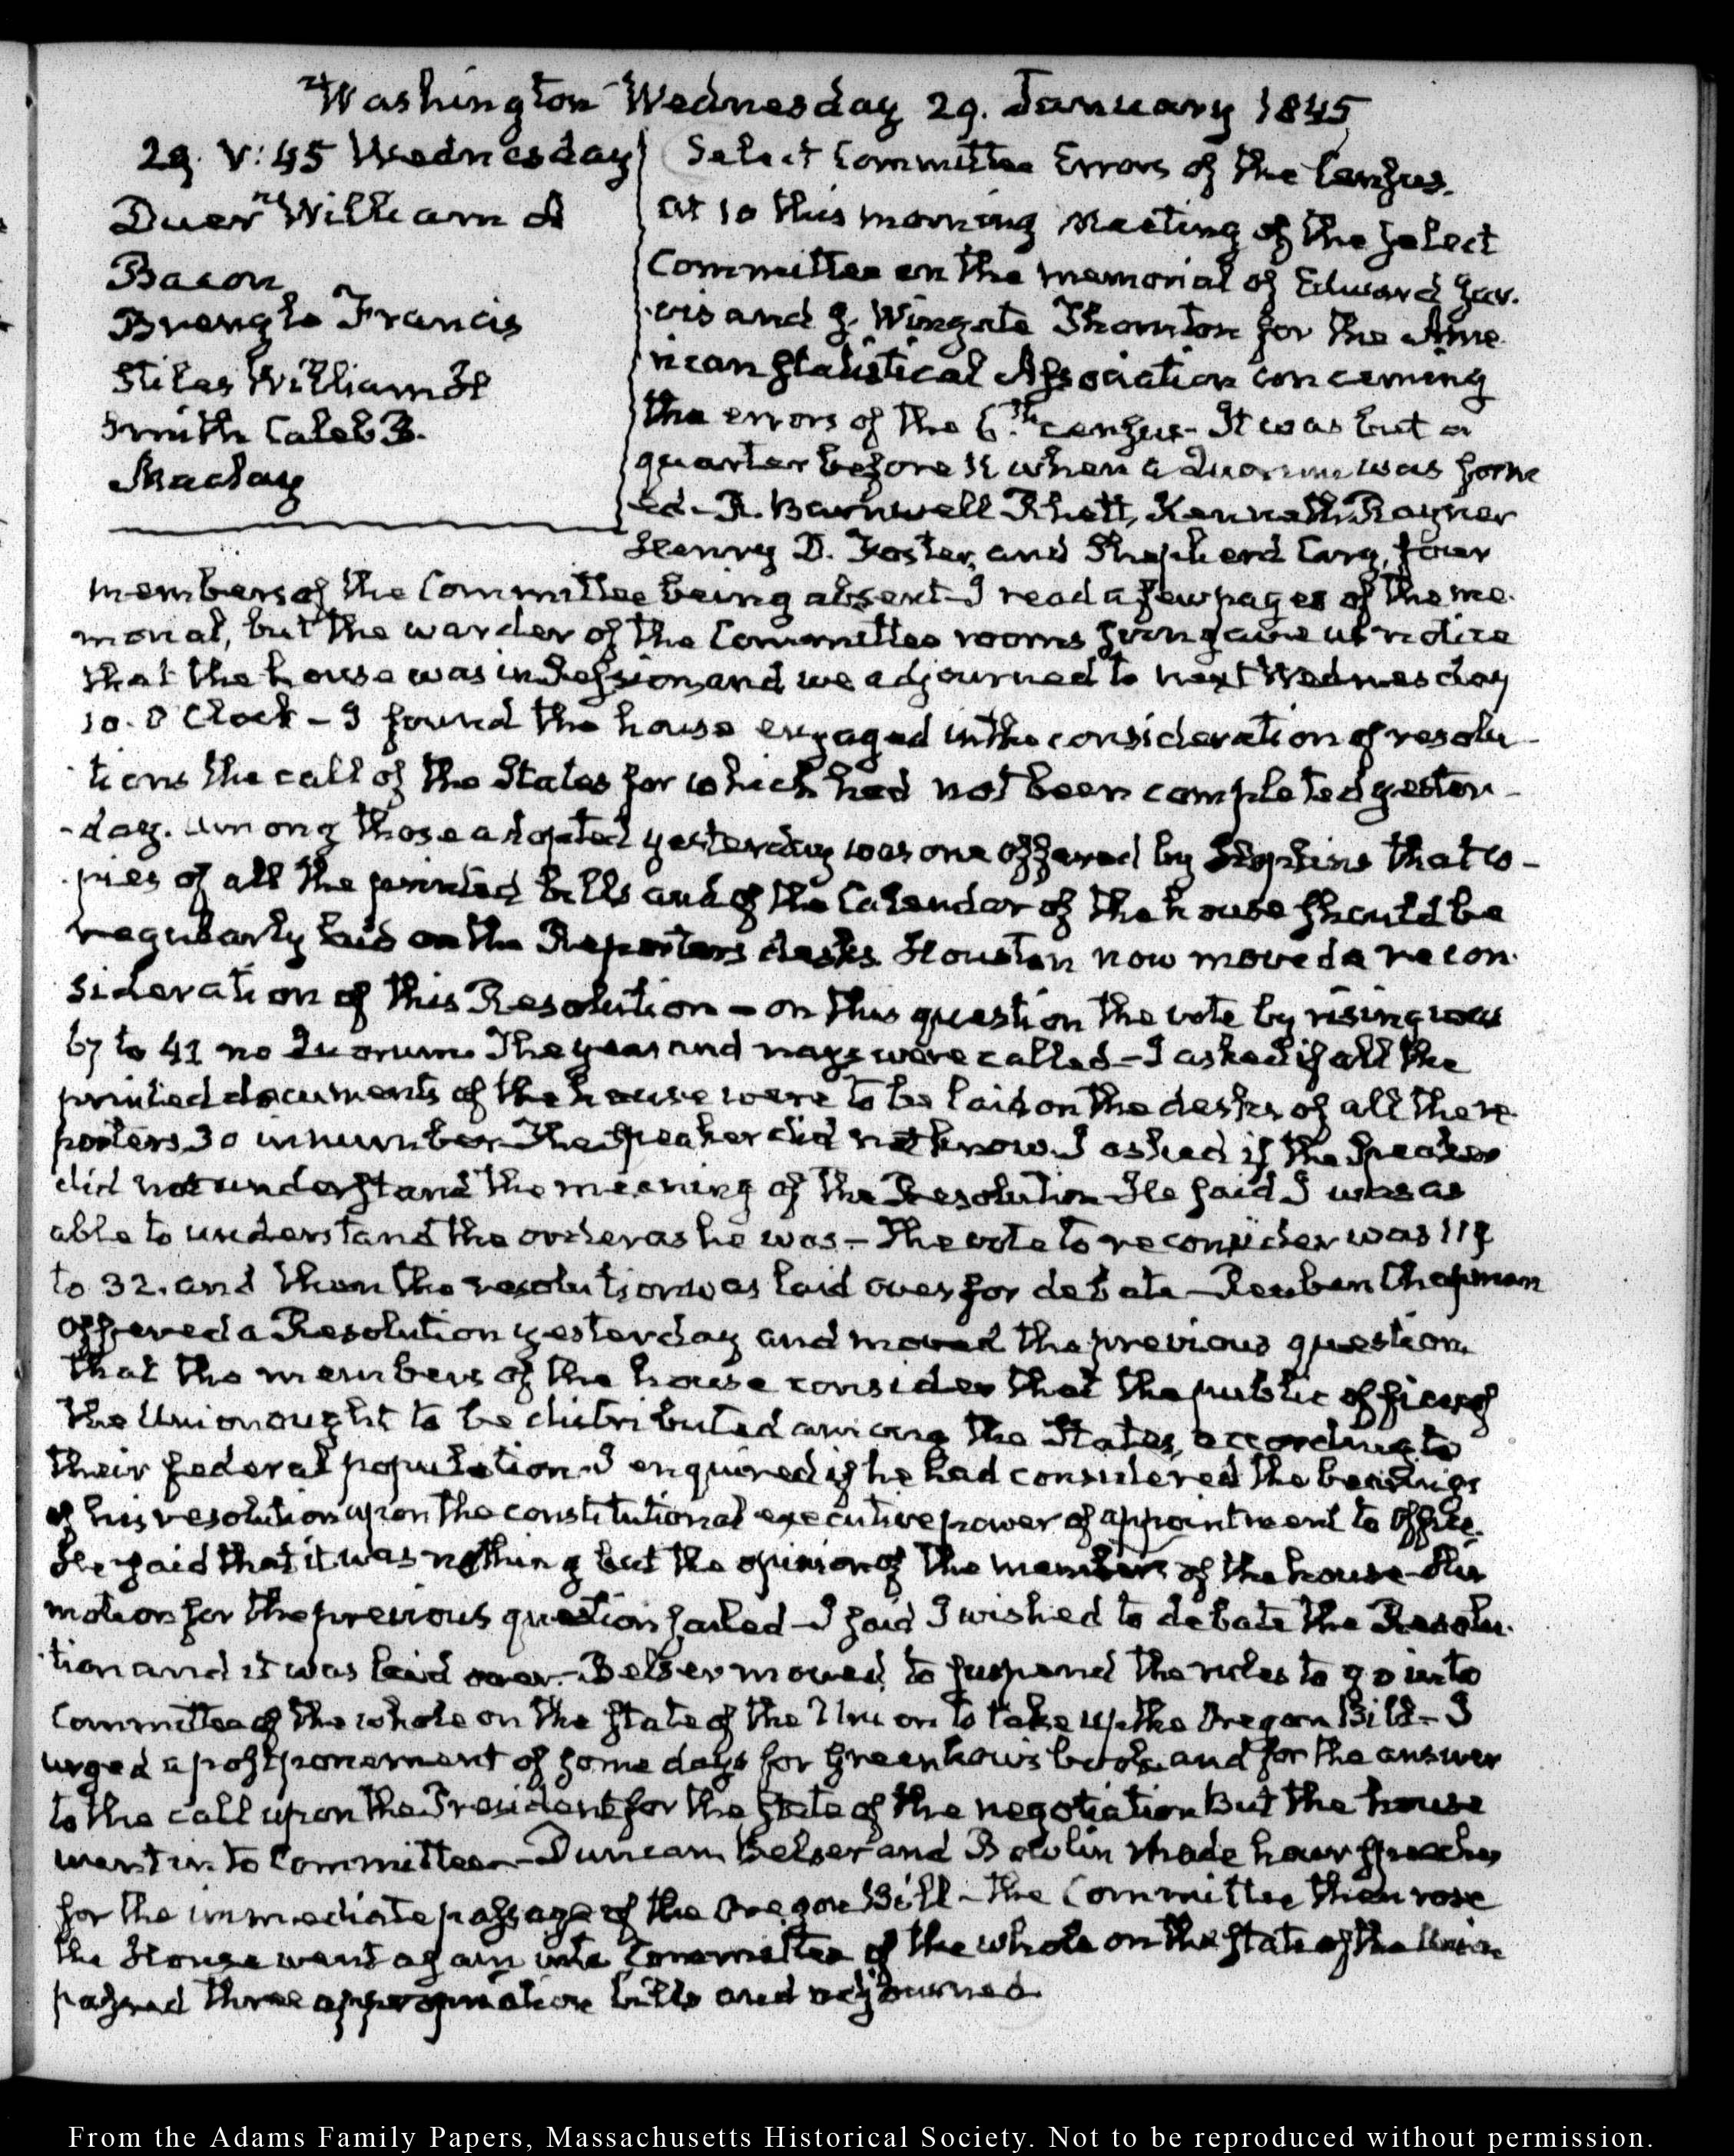 Washington Wednesday 29. January 1845
29. V:45 Wednesday
Duer William A
Bacon
Brengle Francis
Stiles William H
Smith Caleb B.
Maclay
Select Committee Errors of the Census.
at 10 this morning Meeting of the select
Committee on the memorial of Edward Jar-
vis and J. Wingate Thornton for the Ame-
rican Statistical Association concerning
the errors of the 6.th census. It was but a
quarter before 11 when a Quorum was form-
ed. R. Barnwell Rhett, Kenneth Rayner
Henry D. Foster, and Shepherd Cary, four
members of the Committee being absent. I read a few pages of the me-
morial, but the warder of the Committee rooms gave us notice
that the house was in Session, and we adjourned to next Wednesday
10. O Clock – I found the house engaged in the consideration of resolu-
tions the call of the States for which had not been completed yester-
-day. Among those adopted yesterday was one offered by Hopkins that co-
pies of all the printed bills and of the Calendar of the house should be
regularly laid on the Reporters desks. Houston now moved a recon-
sideration of this Resolution – on this question the vote by rising was
67 to 41 no Quorum. The yeas and nays were called – I asked if all the
printed documents of the house were to be laid on the desks of all the re-
porters 30 in number. The Speaker did not know. I asked if the Speaker
did not understand the meaning of the Resolution. He said I was as
able to understand the order as he was – The vote to reconsider was 118
to 32. and then the resolution was laid over for debate – Reuben Chapman
offered a Resolution yesterday and moved the previous question
that the members of the house consider that the public offices of
the Union ought to be distributed among the States, according to
their federal population. I enquired if he had considered the bearings
of his resolution upon the constitutional executive power of appointment to office.
He said that it was nothing but the opinion of the members of the house – His
motion for the previous question failed – I said I wished to debate the Resolu-
tion and it was laid over. – Belser moved to suspend the rules to go into
Committee of the whole on the state of the Union to take up the Oregon Bill – I
urged a postponement of some days for Greenhow's book, and for the answer
to the call upon the President for the state of the negotiation But the house
went into Committee – Duncan, Belser and Bowlin made hour speeches
for the immediate passage of the Oregon Bill – the Committee then rose
the House went again into Committee of the whole on the state of the Union
passed three appropriation bills and adjourned
From the Adams Family Papers, Massachusetts Historical Society. Not to be reproduced without permission.